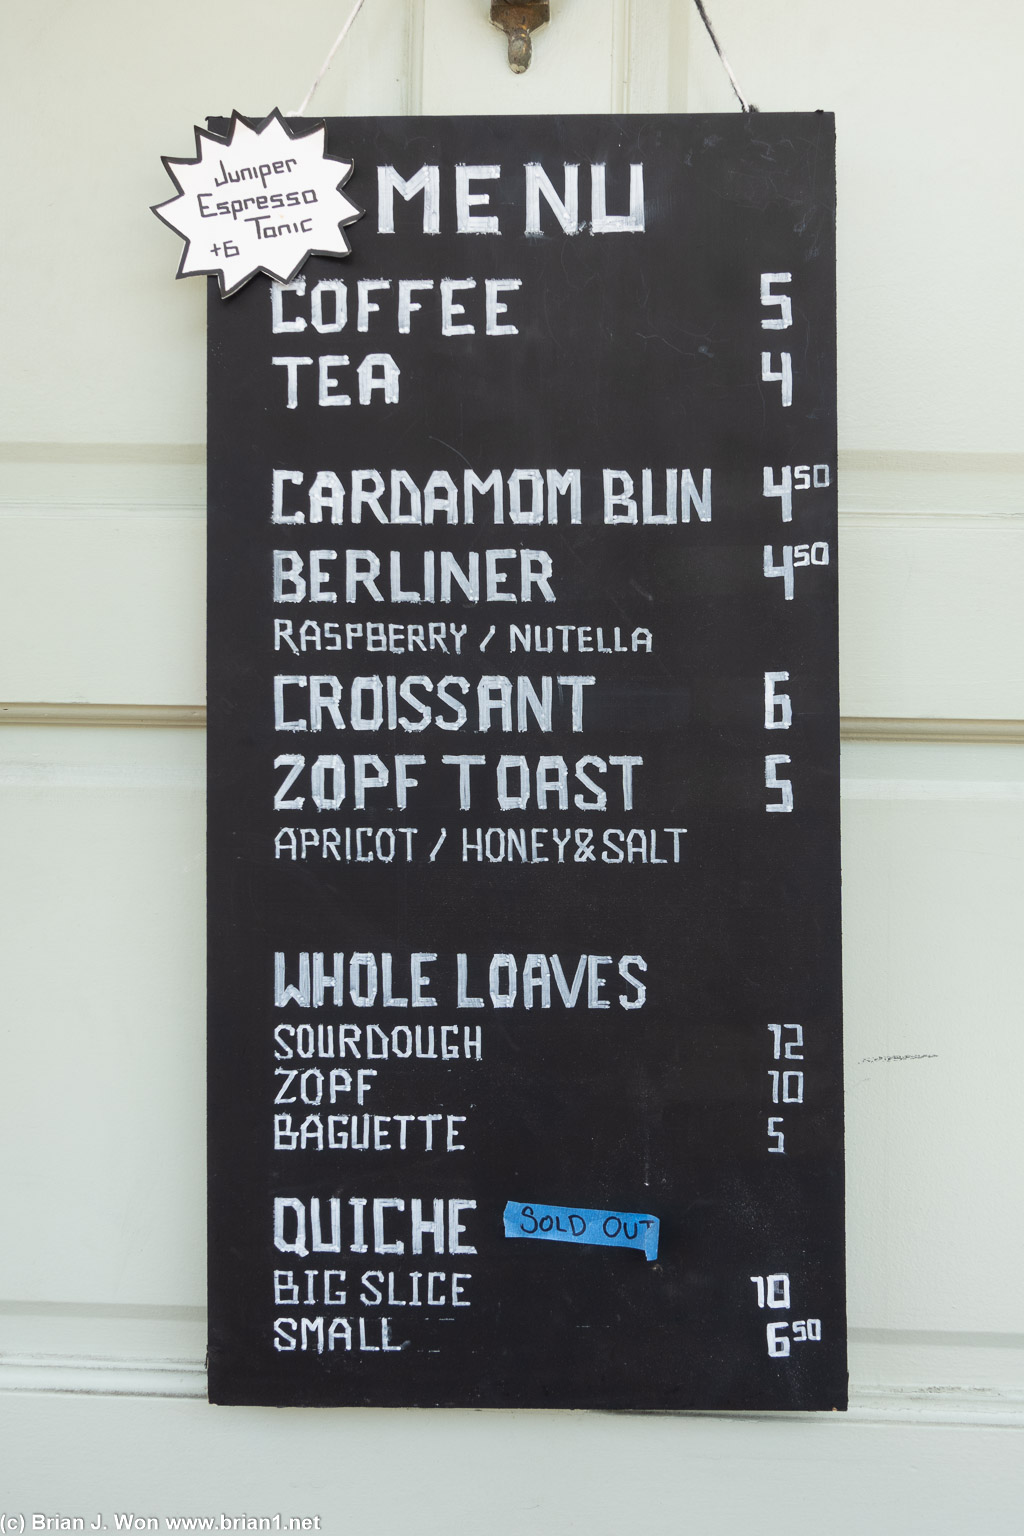 Juniper
Espresso
Tonic
+6
MENU
COFFEE 5
TEA 4
CARDAMOM BUN 4 50
BERLINER 4 50
RASPBERRY / NUTELLA
CROISSANT 6
ZOPF TOAST 5
APRICOT / HONEY&SALT
WHOLE LOAVES
SOURDOUGH 12
ZOPF 10
BAGUETTE 5
QUICHE SOLD OUT
BIG SLICE 10
SMALL 6 50
(c) Brian J. Won www.brian1.net